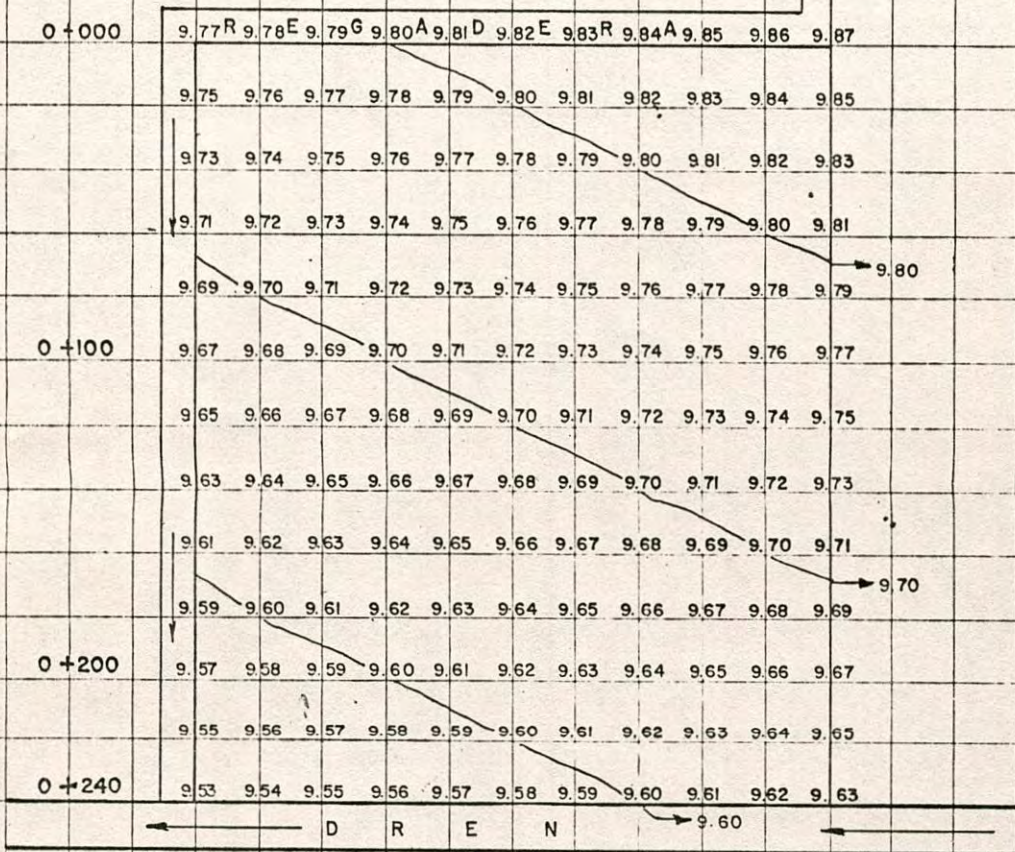 0+000 9.77 R 9.78 E 9.79 G 9.80 A 9.81 D 9.82 E 9.83 R 9.84 A 9.85 9.86 9.87
9.75 9.76 9.77 9.78 9.79 9.80 9.81 9.82 9.83 9.84 9.85
9.73 9.74 9.75 9.76 9.77 9.78 9.79 9.80 9.81 9.82 9.83
9.71 9.72 9.73 9.74 9.75 9.76 9.77 9.78 9.79 9.80 9.81
9.80
9.69 9.70 9.71 9.72 9.73 9.74 9.75 9.76 9.77 9.78 9.79
0+100 9.67 9.68 9.69 9.70 9.71 9.72 9.73 9.74 9.75 9.76 9.77
9.65 9.66 9.67 9.68 9.69 9.70 9.71 9.72 9.73 9.74 9.75
9.63 9.64 9.65 9.66 9.67 9.68 9.69 9.70 9.71 9.72 9.73
9.61 9.62 9.63 9.64 9.65 9.66 9.67 9.68 9.69 9.70 9.71
9.70
9.59 9.60 9.61 9.62 9.63 9.64 9.65 9.66 9.67 9.68 9.69
0+200 9.57 9.58 9.59 9.60 9.61 9.62 9.63 9.64 9.65 9.66 9.67
9.55 9.56 9.57 9.58 9.59 9.60 9.61 9.62 9.63 9.64 9.65
0+240 9.53 9.54 9.55 9.56 9.57 9.58 9.59 9.60 9.61 9.62 9.63
9.60
D R E N